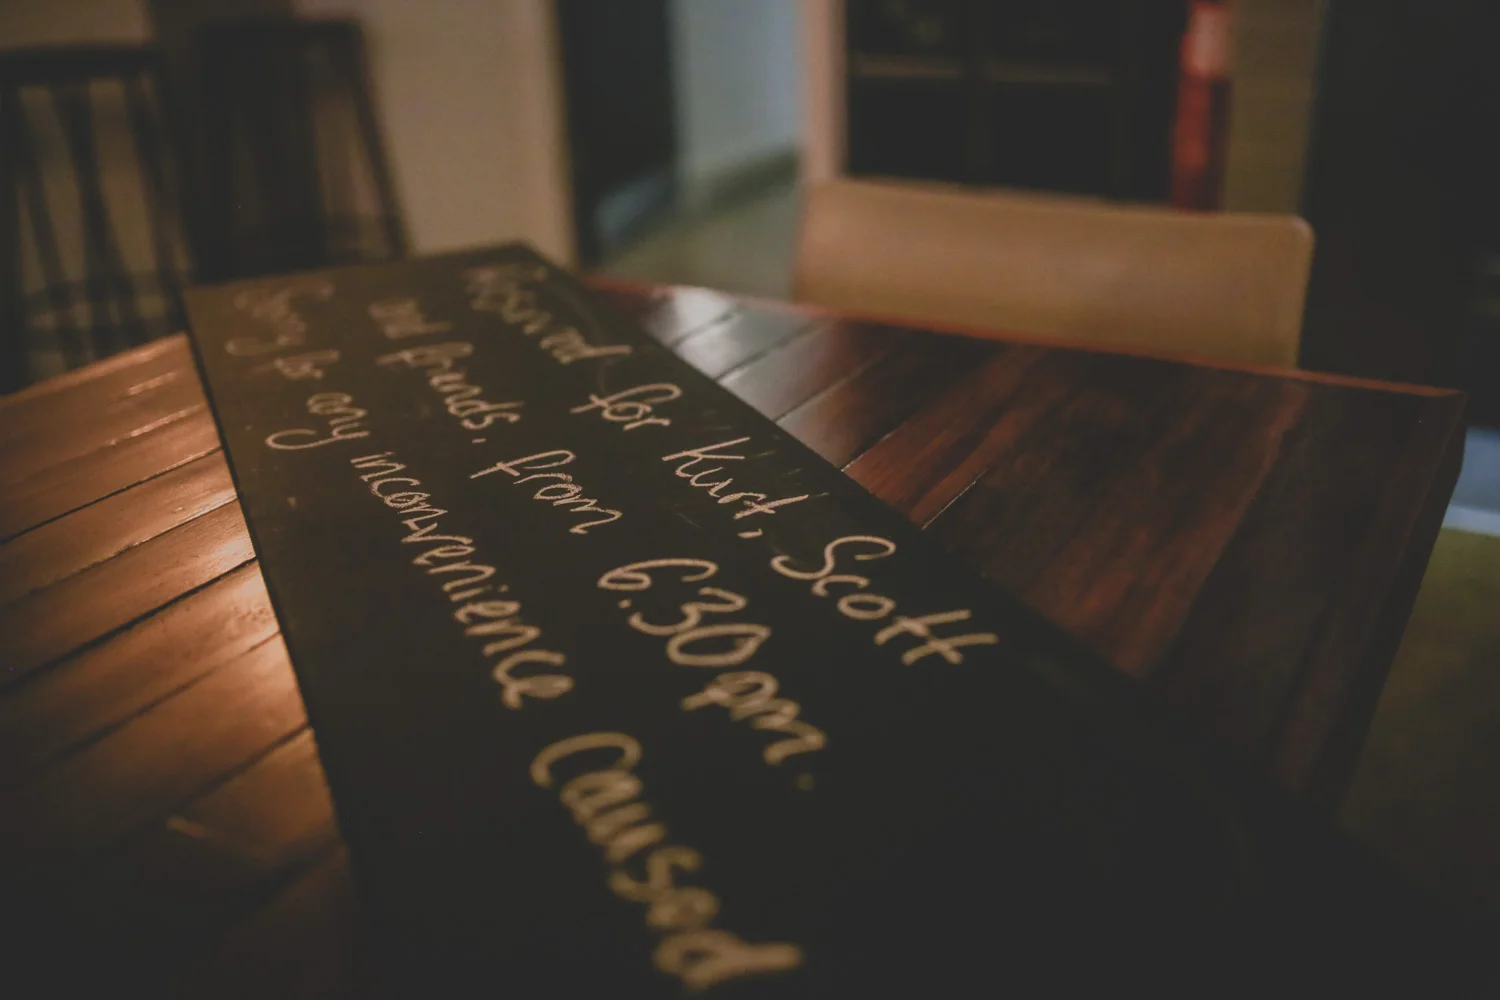 Reserved for Kurt, Scott
and friends. from 6.30pm.
Sorry for any inconvenience Caused